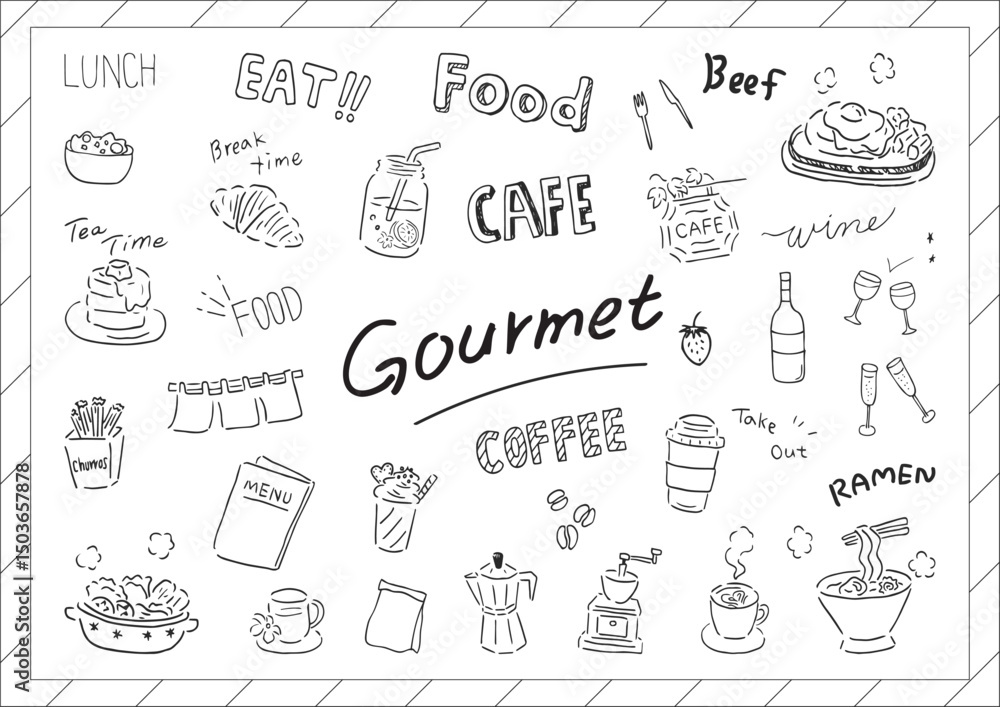 LUNCH
EAT!!
Food
Beef
Break
time
CAFE
CAFE
wine
Tea
Time
FOOD
Gourmet
COFFEE
Take
Out
Churros
MENU
RAMEN
Adobe Stock | #1503657878